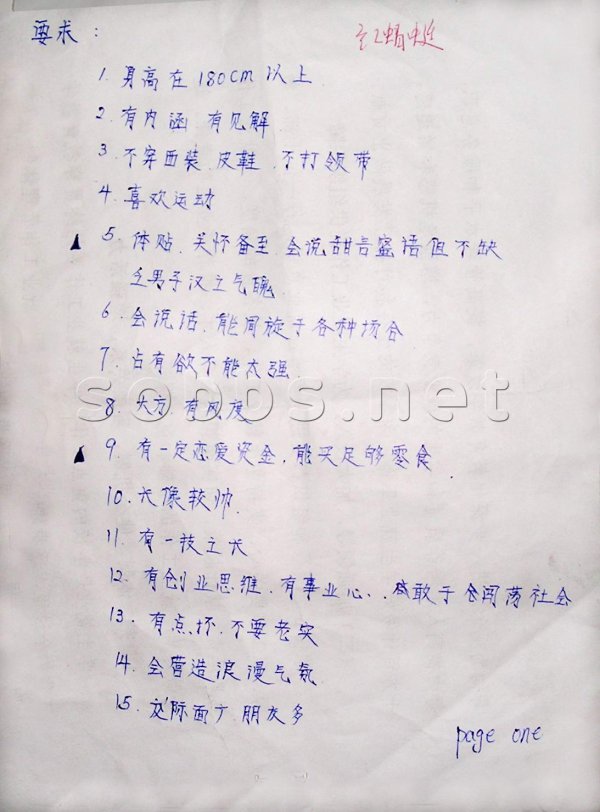 要求：
红蜻蜓
1. 身高在180cm以上
2. 有内涵 有见解
3. 不穿西装、皮鞋、不打领带
4. 喜欢运动
▲ 5. 体贴、关怀备至、会说甜言蜜语但不缺
乏男子汉之气魄
6. 会说话、能周旋于各种场合
7. 占有欲不能太强
sobos.net
8. 大方、有风度
▲ 9. 有一定恋爱资金，能买足够零食
10. 长像较帅
11. 有一技之长
12. 有创业思维、有事业心、敢于闯荡社会
13. 有点坏、不要老实
14. 会营造浪漫气氛
15. 交际面广 朋友多
page one